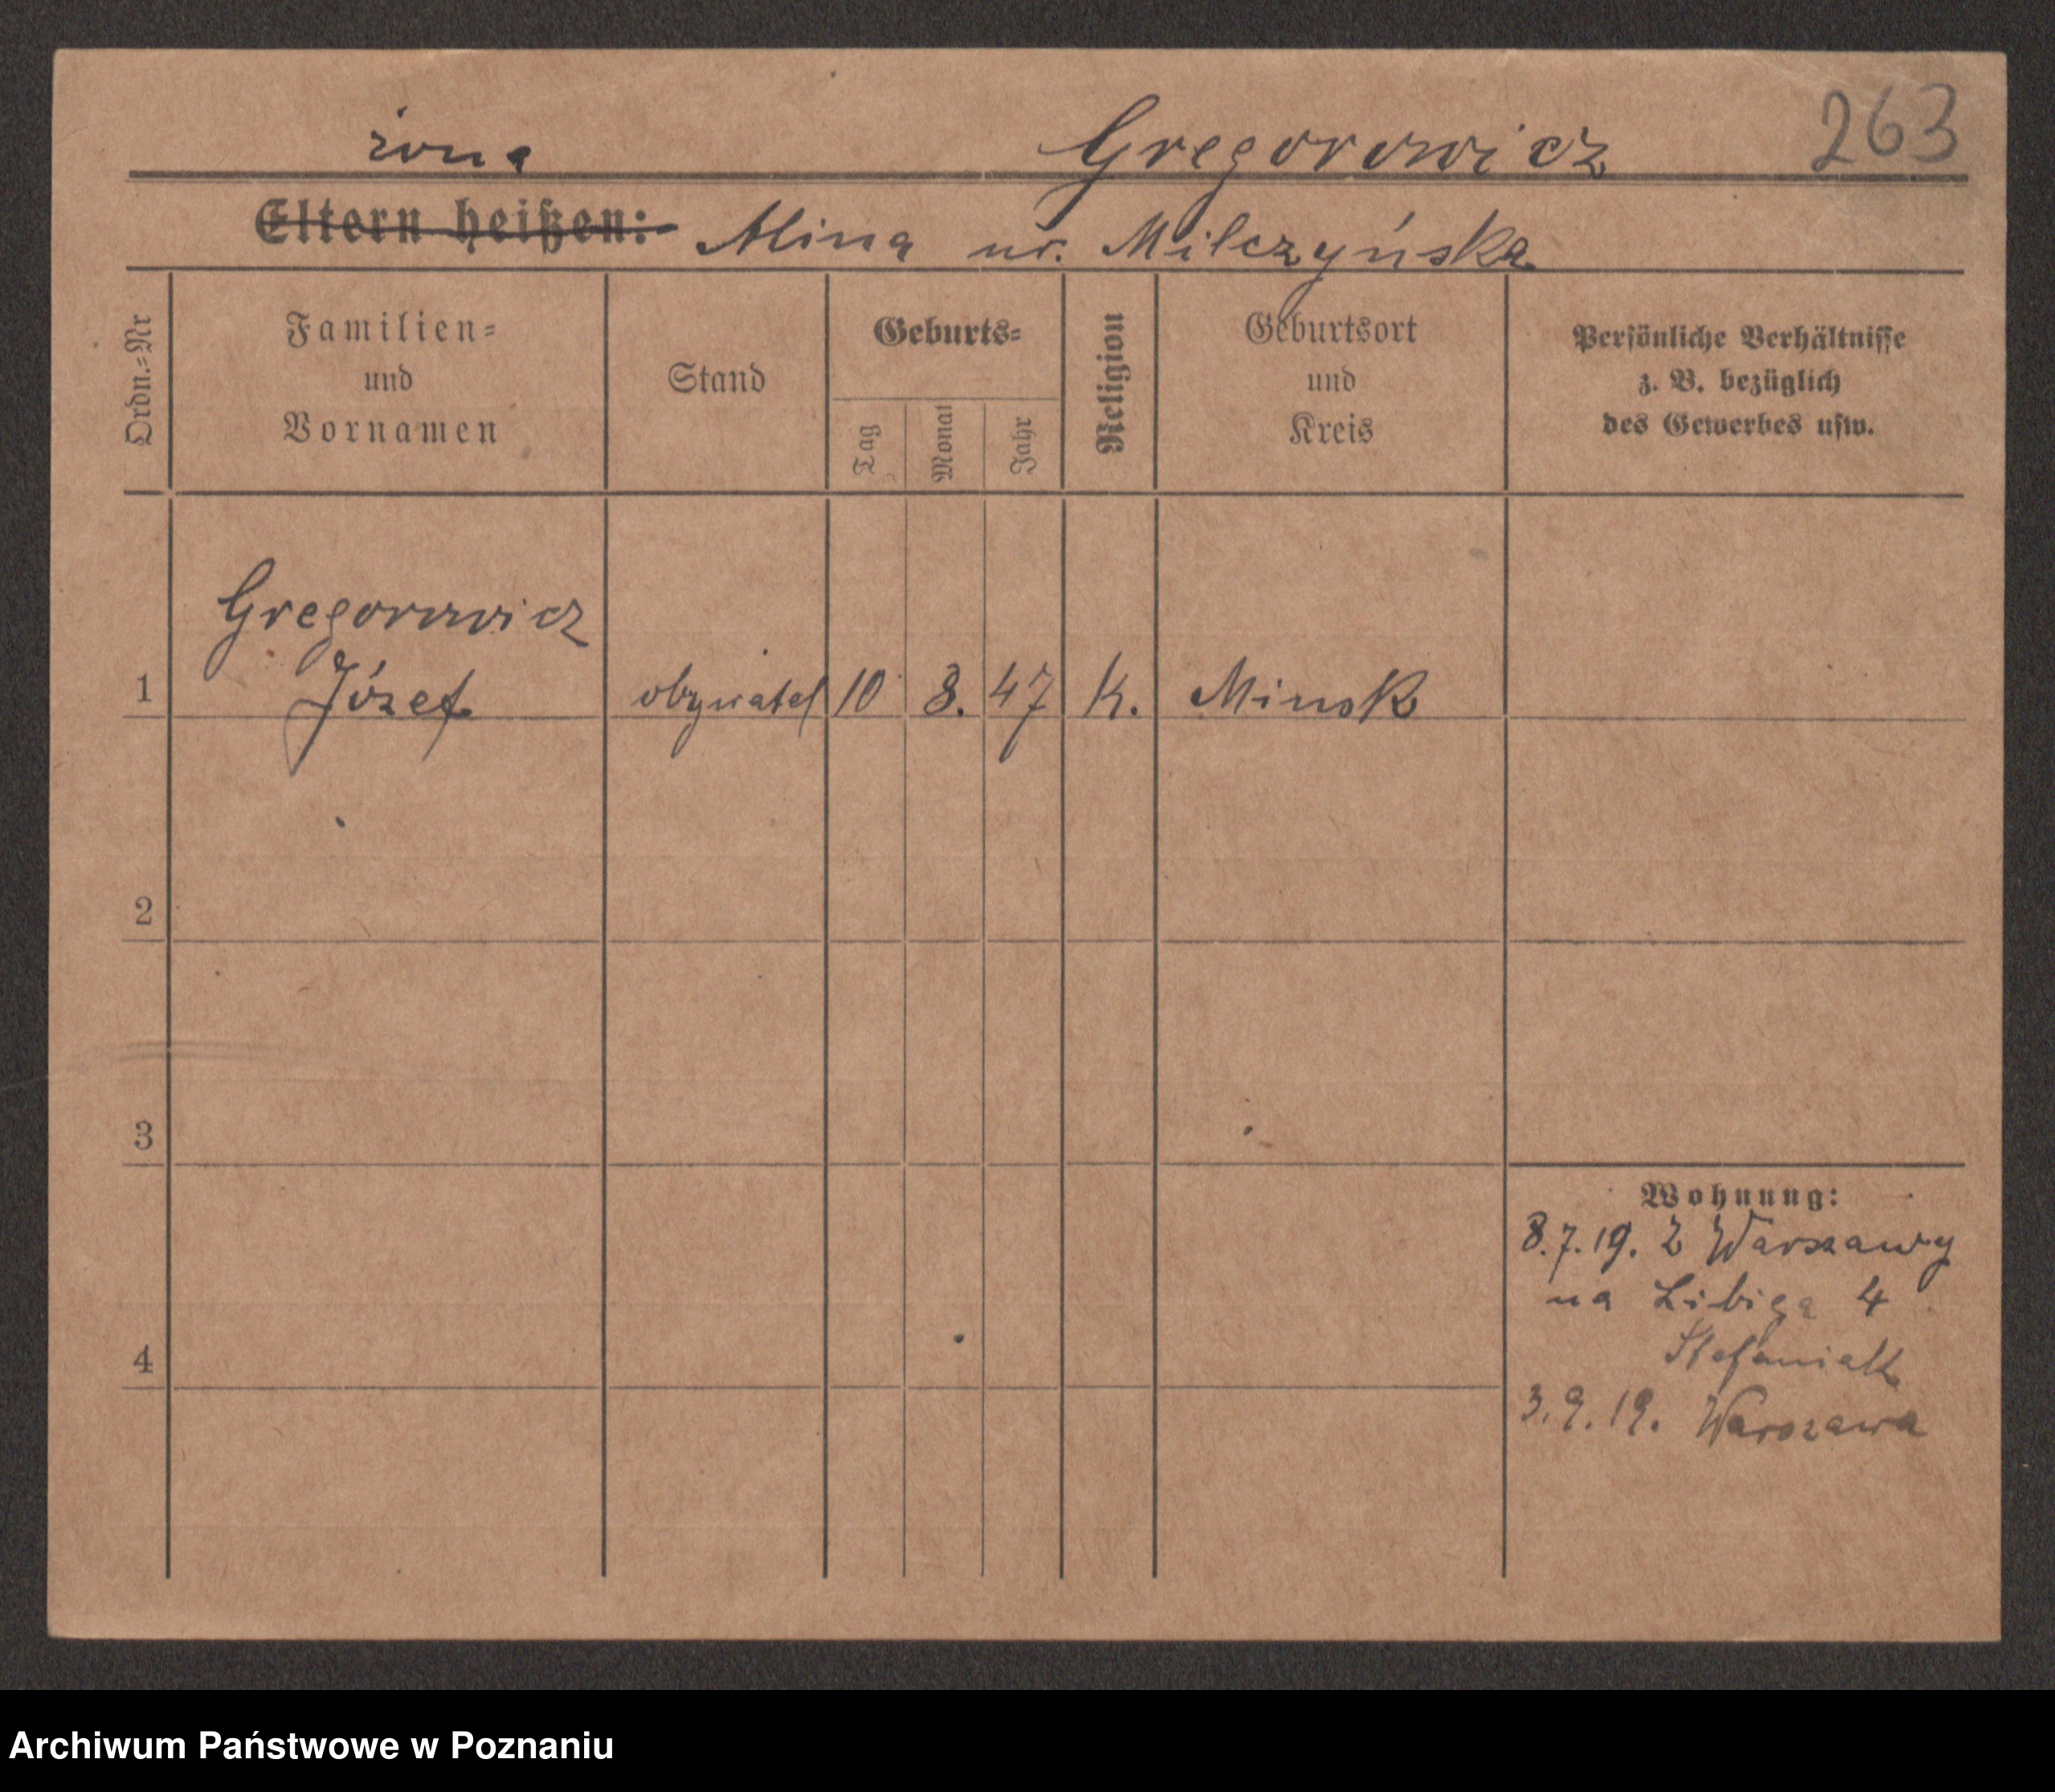 żona Gregorowicz 263
Eltern heißen: Alina ur. Milczyńska
Ordn.-Nr
Familien-
und
Vornamen
Stand
Geburts-
Tag
Monat
Jahr
Religion
Geburtsort
und
Kreis
Persönliche Verhältnisse
z. B. bezüglich
des Gewerbes usw.
Gregorowicz
1 Józef obywatel 10 8. 47 k. Minsk
2
3
Wohnung:
8.7.19. z Warszawy
na Libiga 4
4
3.9.19. Warszawa
Archiwum Państwowe w Poznaniu